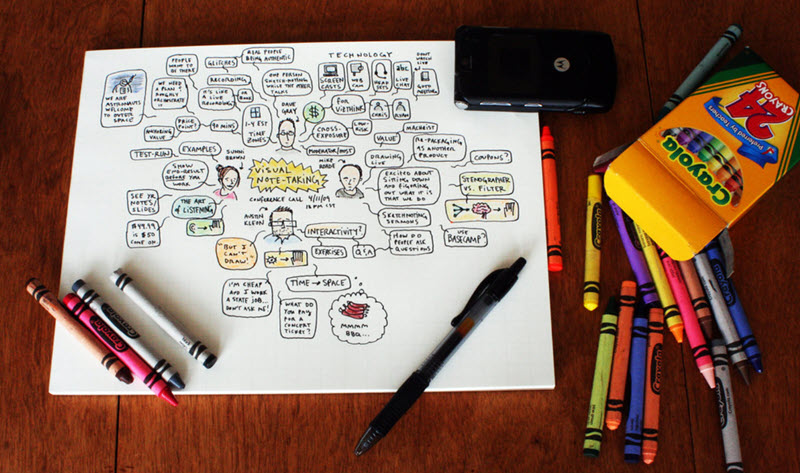 TECHNOLOGY
REAL PEOPLE
BEING AUTHENTIC
PEOPLE
WANT TO
BE THERE
GLITCHES
RECORDING
ONE PERSON
SKETCH-NOTING
WHILE THE OTHER
TALKS
SCREEN
CASTS
WEB
CAM
abc
LIVE
CHAT
DON'T
WATCH
LIVE
GOTO
MEETING
WE ARE
ASTRONAUTS
WELCOME
TO OUTER
SPACE
WE NEED
A PLAN!
ROUGHLY
ORCHESTRATE
IT
IT'S LIKE
A LIVE
RECORDING!
OR
BOOK
DAVE
GRAY
$
for
VIZTHINK
CHRIS
ADAM
ANCHORING
VALUE
PRICE
POINT?
90 MINS
1-4 EST
TIME
ZONES
CROSS-
EXPOSURE
LOW-
RISK
MODERATOR/HOST
VALUE
MACHEIST
RE-PACKAGING
AS ANOTHER
PRODUCT
COUPONS?
TEST-RUN
EXAMPLES
SUNNI
BROWN
MIKE
ROHDE
DRAWING
LIVE
SHOW
END-RESULT
BEFORE YOU
WORK
VISUAL
NOTE-TAKING
CONFERENCE CALL 4/11/09
12PM CST
EXCITED ABOUT
SITTING DOWN
AND FIGURING
OUT WHAT IT IS
THAT WE DO
STENOGRAPHER
VS. FILTER
SEE YR
NOTES/
SLIDES
THE ART
OF LISTENING
AUSTIN
KLEON
SKETCHNOTING
SERMONS
USE
BASECAMP?
$49.99
IS $50
COME ON
INTERACTIVITY?
HOW DO
PEOPLE ASK
QUESTIONS
"BUT I
CAN'T
DRAW!"
EXERCISES
Q&A
I'M CHEAP
AND I WORK
A STATE JOB...
DON'T ASK ME!
TIME → SPACE
WHAT DO
YOU PAY
FOR A
CONCERT
TICKET?
MMMM
BBQ...
24
CRAYONS
Preferred by Teachers
Crayola
Crayola
Crayola
Crayola
Crayola